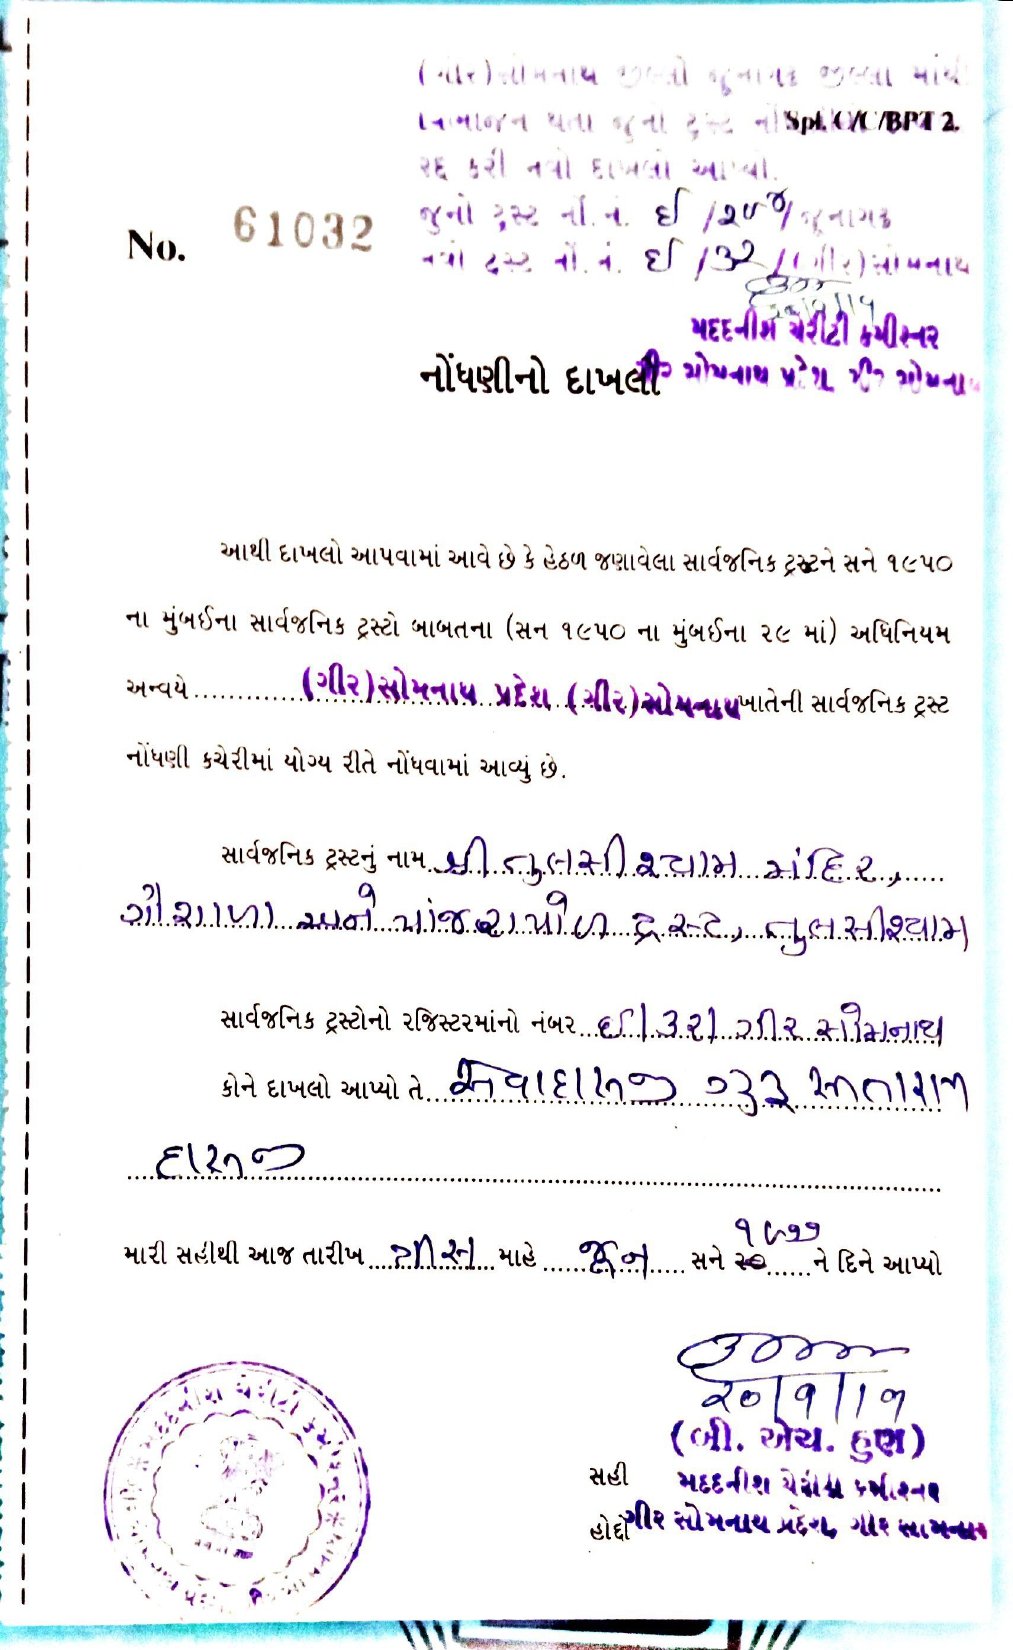 (ગીર)સોમનાથ જીલ્લો જૂનાગઢ જીલ્લા માંથી
વિભાજન થતા જુનો ટ્રસ્ટ નોં
Spl. C/C/BPT 2.
રદ કરી નવો દાખલો આપ્યો.
જુનો ટ્રસ્ટ નોં.નં. ઈ /૨૯૪/જૂનાગઢ
No. 61032
નવો ટ્રસ્ટ નોં.નં. ઈ /૩૨/(ગીર)સોમનાથ
મદદનીશ ચેરીટી કમીશ્નર
ગીર સોમનાથ પ્રદેશ, ગીર સોમનાથ
નોંધણીનો દાખલો
આથી દાખલો આપવામાં આવે છે કે હેઠળ જણાવેલા સાર્વજનિક ટ્રસ્ટને સને ૧૯૫૦
ના મુંબઈના સાર્વજનિક ટ્રસ્ટો બાબતના (સન ૧૯૫૦ ના મુંબઈના ૨૯ માં) અધિનિયમ
અન્વયે (ગીર)સોમનાથ પ્રદેશ (ગીર)સોમનાથ ખાતેની સાર્વજનિક ટ્રસ્ટ
નોંધણી કચેરીમાં યોગ્ય રીતે નોંધવામાં આવ્યું છે.
સાર્વજનિક ટ્રસ્ટનું નામ શ્રી તુલસીશ્યામ મંદિર,
ગૌશાળા અને પાંજરાપોળ ટ્રસ્ટ, તુલસીશ્યામ
સાર્વજનિક ટ્રસ્ટોનો રજિસ્ટરમાંનો નંબર ઈ/૩૨/ ગીર સોમનાથ
કોને દાખલો આપ્યો તે સેવાદાસજી ગુરૂ સીતારામ
દાસજી
મારી સહીથી આજ તારીખ ત્રીસ માહે જૂન સને ૧૯૭૭ ને દિને આપ્યો
૨૦/૧/૧૭
(બી. એચ. હુણ)
સહી મદદનીશ ચેરીટી કમીશ્નર
હોદ્દો ગીર સોમનાથ પ્રદેશ, ગીર સોમનાથ
મદદનીશ ચેરીટી કમીશ્નર